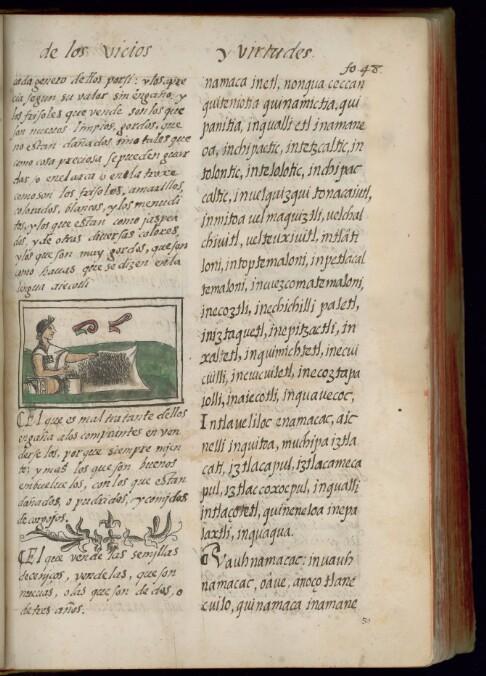 de los vicios y virtudes
fo. 48
cada genero dellos porsi: y los pre
cia segun su valor sin engaño. y
los frisoles que vende son los que
son nuevos limpios, gordos, que
no estan dañados, sino tales que
como cosa preciosa se pueden guar
dar, o en el arca o en la troxe
como son los frisoles, amarillos
colorados, blancos, y los menudi
tos, y los que estan como jaspea
dos, y de otras diversas colores,
y los que son muy gordos, que son
como hauas que se dizen en la
lengua aiecotli
El que es mal tratante dellos
engaña a los comprantes en ven
derselos, por que siempre mien
te: y mas los que son buenos
embuelue los, con los que estan
dañados, o podridos, y comidos
de corgojos.
El que vende las semillas
de cenicos, vende las, que son
nueuas, o las que son de dos, o
de tres años.
namaca in etl, nonqua ceccan
quitentotia quinamictia, qui
panitia, inqualli etl inamane
oa, inchipactic, intetzcaltic, in
tolontic, intelolotic, inchipac
caltic, in uel quizqui tonacaiutl,
inmitoa vel maquiztli, uelchal
chiuitl, uel teuxiuitl, intlati
loni, intoptemaloni, inpetlacal
temaloni, in uezcomatemaloni,
inecoztli, inechichilli paletl,
iniztaquetl, inepitzactli, in
xaletl, inquimichtetl, inecui
cuilli, incuicuiletl, inecoztapa
iolli, inaiecotli, inquavecoc,
Intlaveliloc enamacac, aic
nelli inquitoa, muchipa iztla
cati, iztlacapul, iztlacameca
pul, iztlaccoxocpul, inqualli
intlacotetl, quineneloa inepa
laxtli, inquaqua.
Vauhnamacac: inuauh
namacac, oave, anoço tlane
cuilo, quinamaca inamane
50